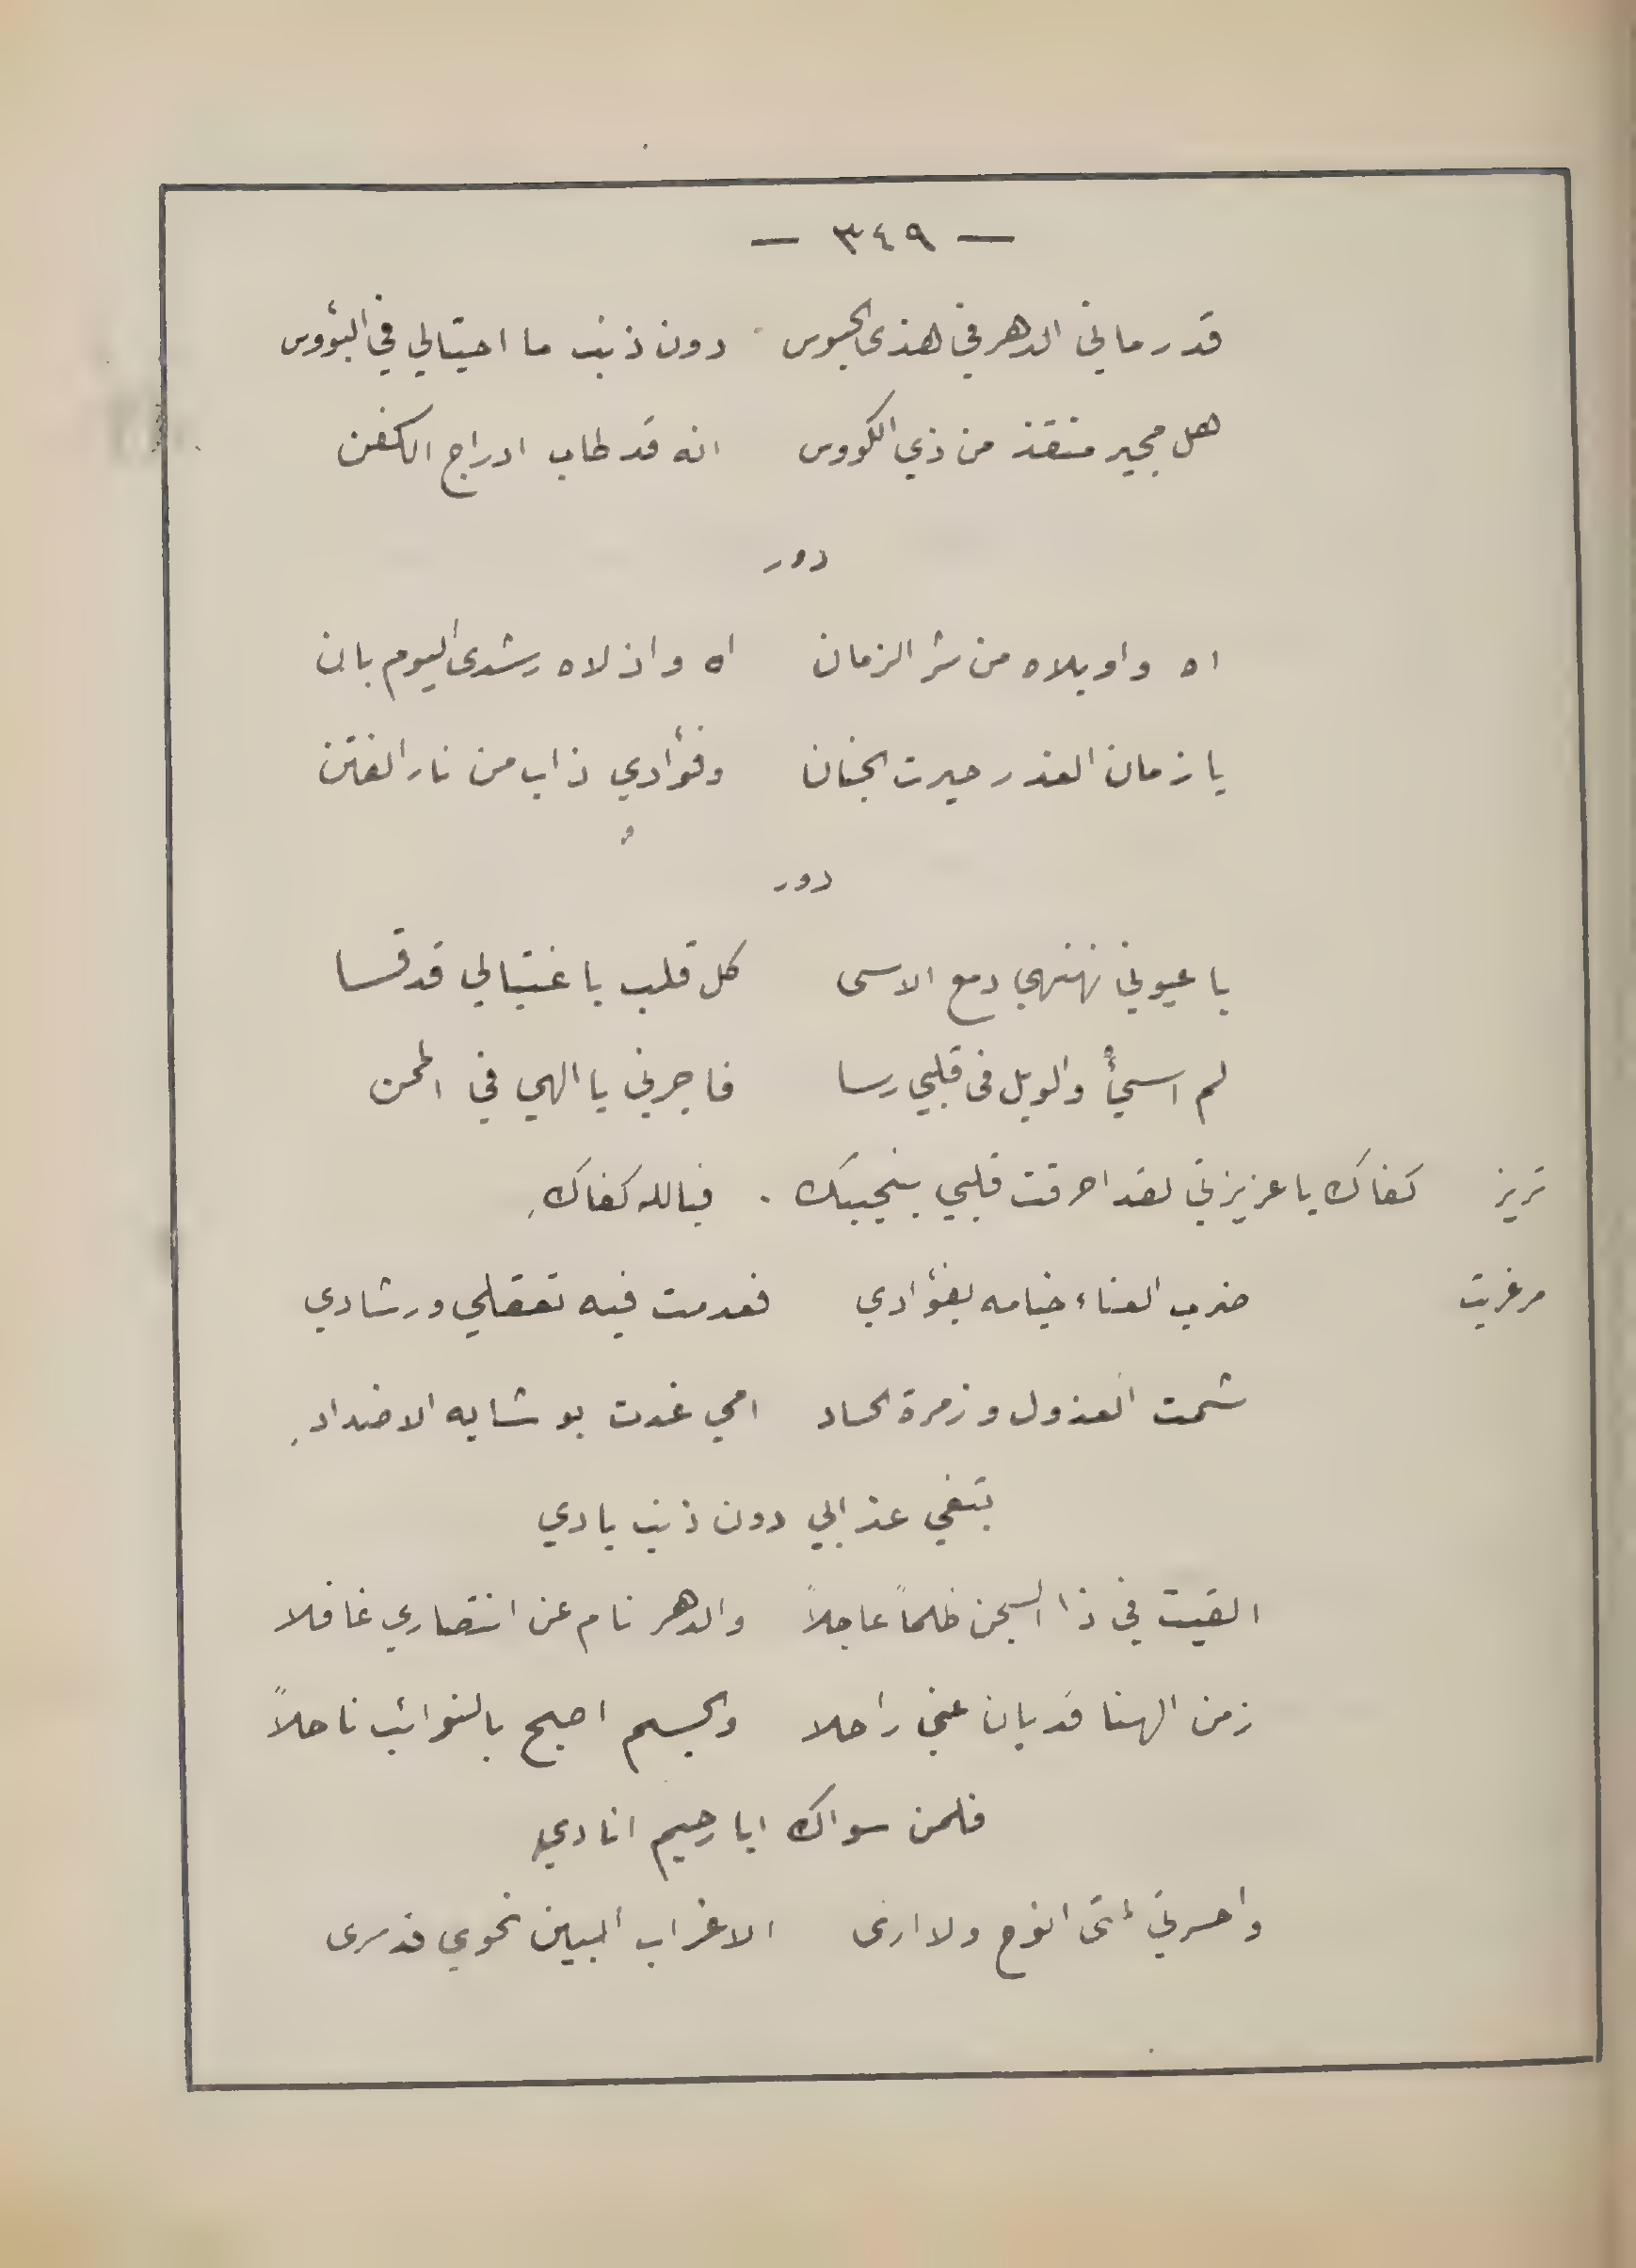 — ٣٤٩ —
قد رماني الدهر في هذى الحبوس دون ذنب ما احتيالي في البؤوس
هل مجير منقذ من ذي الكووس انه قد طاب ادراج الكفن
دور
اه واويلاه من شر الزمان اه واذلاه رشدى اليوم بان
يا زمان الغدر حيرت الجنان وفؤادي ذاب من نار الفتن
دور
يا عيوني نهنهي دمع الاسى كل قلب باغتيالي قد قسا
لم اسئ والويل في قلبي رسا فاجرني يا الهي في المحن
تريز كفاك يا عزيزتي لقد احرقت قلبي بنحيبك . فبالله كفاكِ
مرغريت ضرب العناء خيامه بفؤادي فعدمت فيه تعقلي ورشادي
شمت العذول وزمرة الحساد امي غدت بوشاية الاضدادِ
تبغي عذابي دون ذنب بادي
القيت في ذا السجن ظلماً عاجلاً والدهر نام عن انتصاري غافلا
زمن الهنا قد بان عني راحلا والجسم اصبح بالنوائب ناحلاً
فلمن سواك ايا رحيم انادي
واحسرتي انوح ولا ارى الا غراب البين نحوي قد سرى